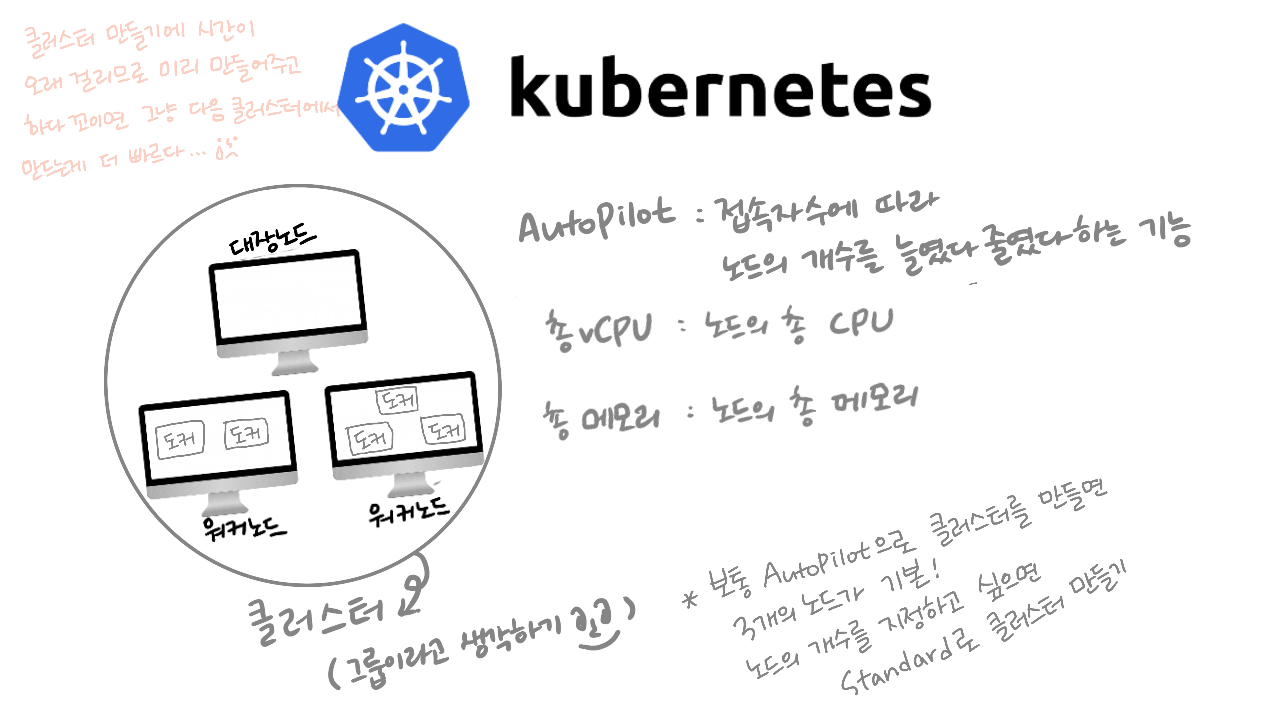 클러스터 만들기에 시간이
오래 걸리므로 미리 만들어주고
하다 꼬이면 그냥 다음 클러스터에서
만드는게 더 빠르다...
kubernetes
대장노드
도커 도커
도커
도커 도커
워커노드
워커노드
클러스터
(그룹이라고 생각하기)
AutoPilot : 접속자수에 따라
노드의 개수를 늘렸다 줄였다 하는 기능
총 vCPU : 노드의 총 CPU
총 메모리 : 노드의 총 메모리
* 보통 AutoPilot으로 클러스터를 만들면
3개의 노드가 기본!
노드의 개수를 지정하고 싶으면
Standard로 클러스터 만들기